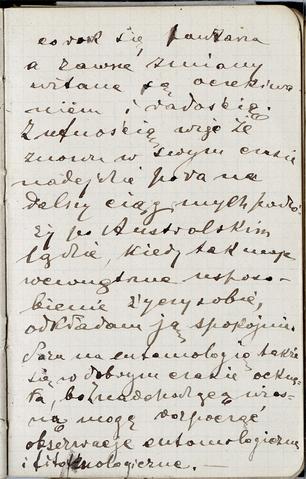 co rok się powtarza
a zawsze zmiany
witane są oczekiwa
niem i radością.
Z ufnością więc że
znowu w swym czasie
nadejdzie pora na
dalszy ciąg mych podró
ży po Australskim
lądzie, kiedy tak moje
wewnętrzne usposo-
bienie życzy sobie,
odkładam ją spokojnie.
Pora na entomologię także
się w dobrym czasie ocknę
ła, bo nadchodzącą wios-
ną mogę rozpocząć
obserwacje entomologiczne
i fitofenologiczne. —